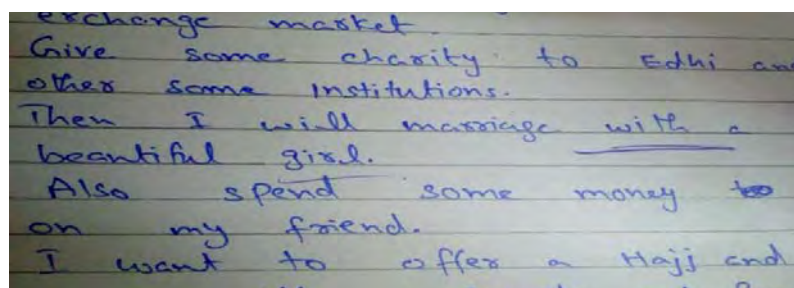 exchange market.
Give some charity to Edhi an
other some institutions.
Then I will marriage with a
beautiful girl.
Also spend some money to
on my friend.
I want to offer a Hajj and